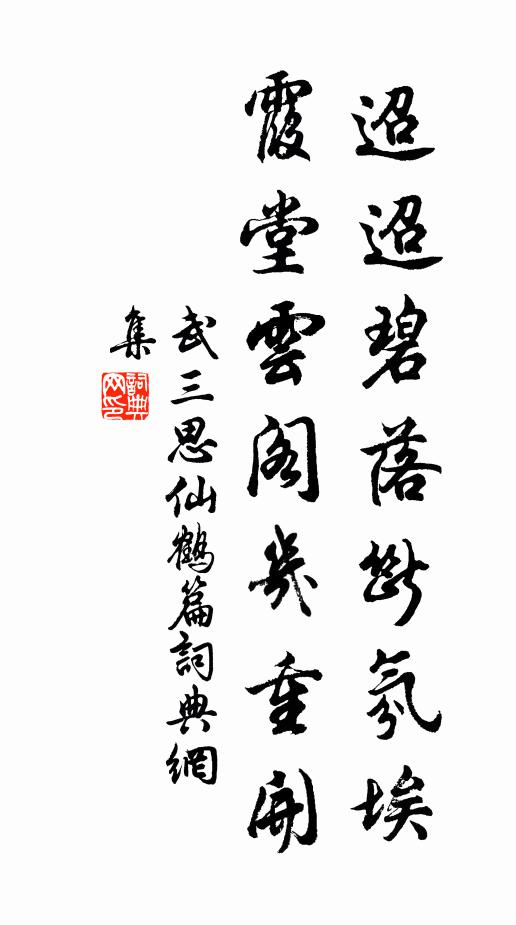 迢迢碧落斷氛埃
霞堂雲閣幾重開
武三思仙鶴篇詞典網
集
詞典
网印